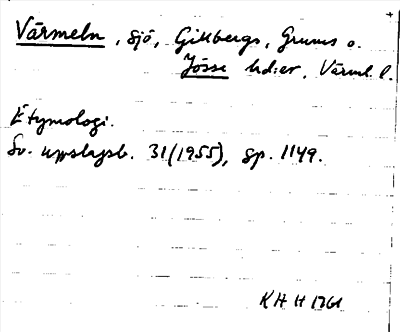 Värmeln, sjö, Gillbergs, Grums o.
Jösse hd:er, Värml. l.
Etymologi.
Sv. uppslagsb. 31 (1955), sp. 1149.
KHH 1761